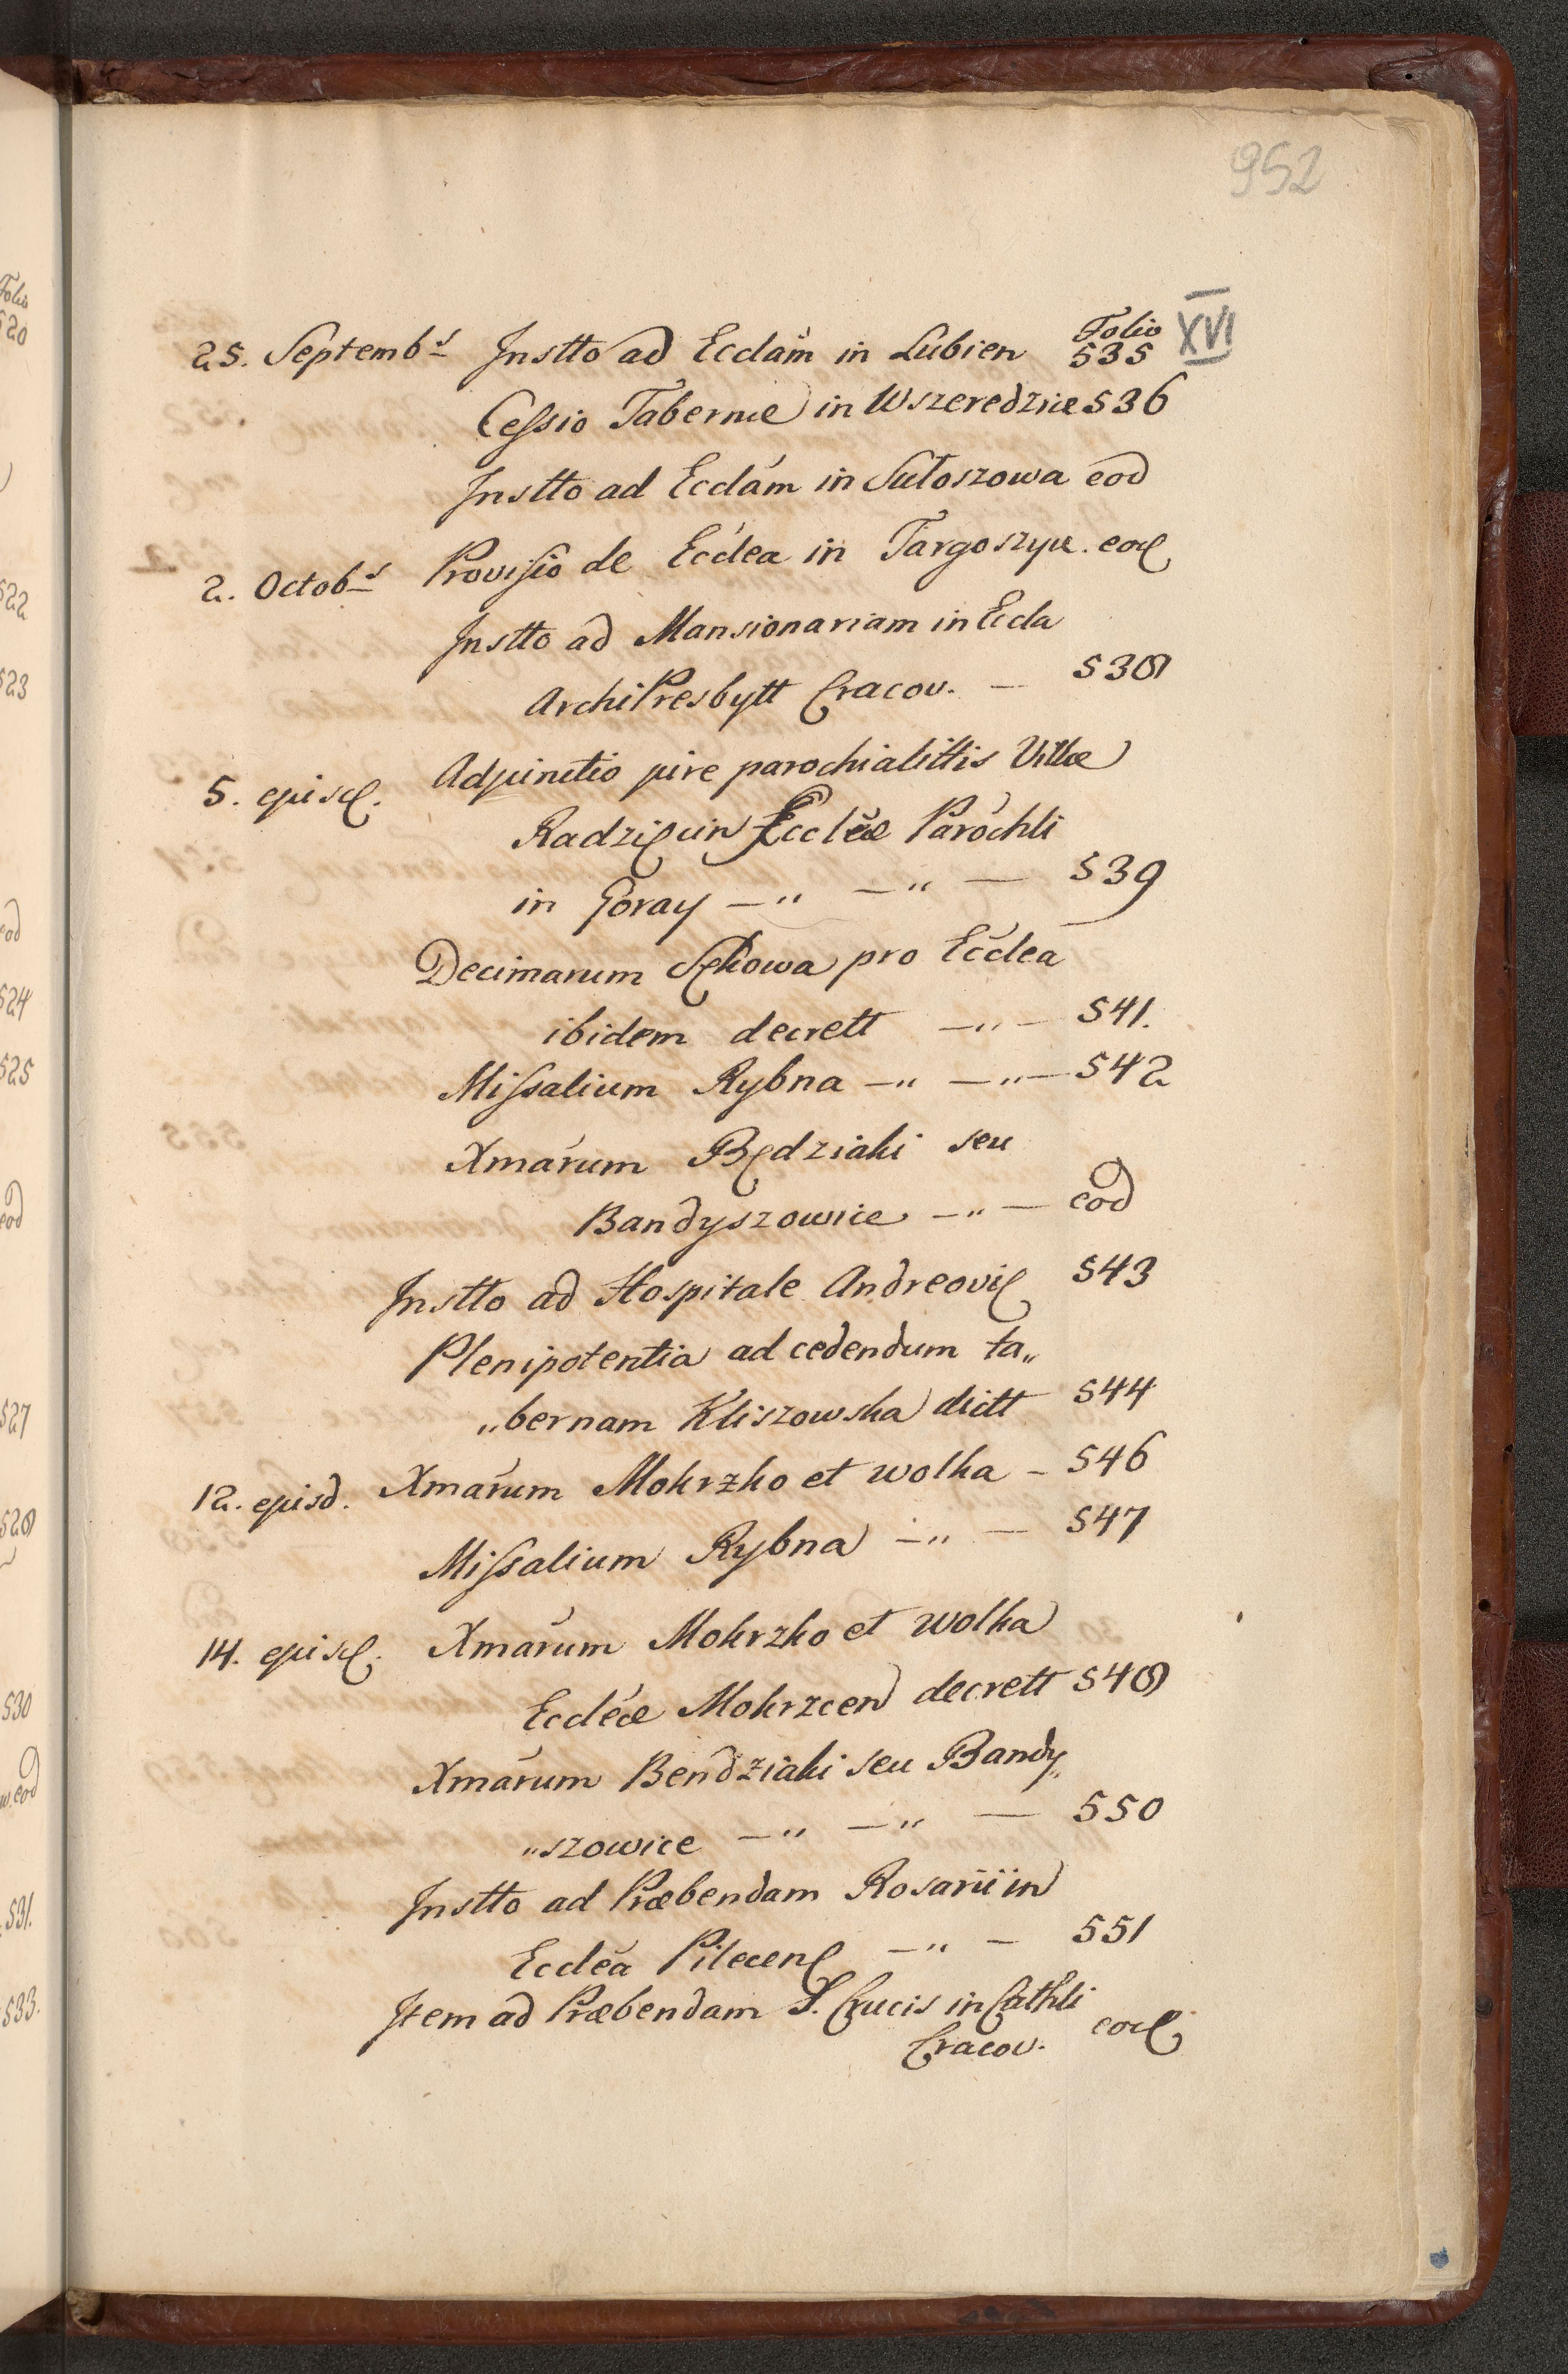 952
Folio XVI
25. Septembs Instto ad Ecclam in Lubien 535
Cessio Tabernæ in Wszeredzice 536
Instto ad Ecclam in Sułoszowa eod
2. Octobs Provisio de Ecclea in Targoszyce. eod
Instto ad Mansionariam in Eccla
ArchiPresbytt Cracov. — 538
5. ejusd. Adjunctio jure parochialittis Villæ
Radzięcin Eccleæ Parochli
in Goray —" —" — 539
Decimarum Sękowa pro Ecclea
ibidem decrett —" — 541.
Missalium Rybna —" —"— 542
Xmarum Będziaki seu
Bandyszowice —" — eod
Instto ad Hospitale Andreovi 543
Plenipotentia ad cedendum ta„
„bernam Kliszowska dictt 544
12. ejusd. Xmarum Mokrzko et wolka – 546
Missalium Rybna —" — 547
14. ejusd. Xmarum Mokrzko et wolka
Eccleæ Mokrzcen decrett 548
Xmarum Bendziaki seu Bandy„
„szowice —" —" — 550
Instto ad Præbendam Rosarii in
Ecclea Pilecen —" — 551
Item ad Præbendam S. Crucis in Cathli
Cracov. eod